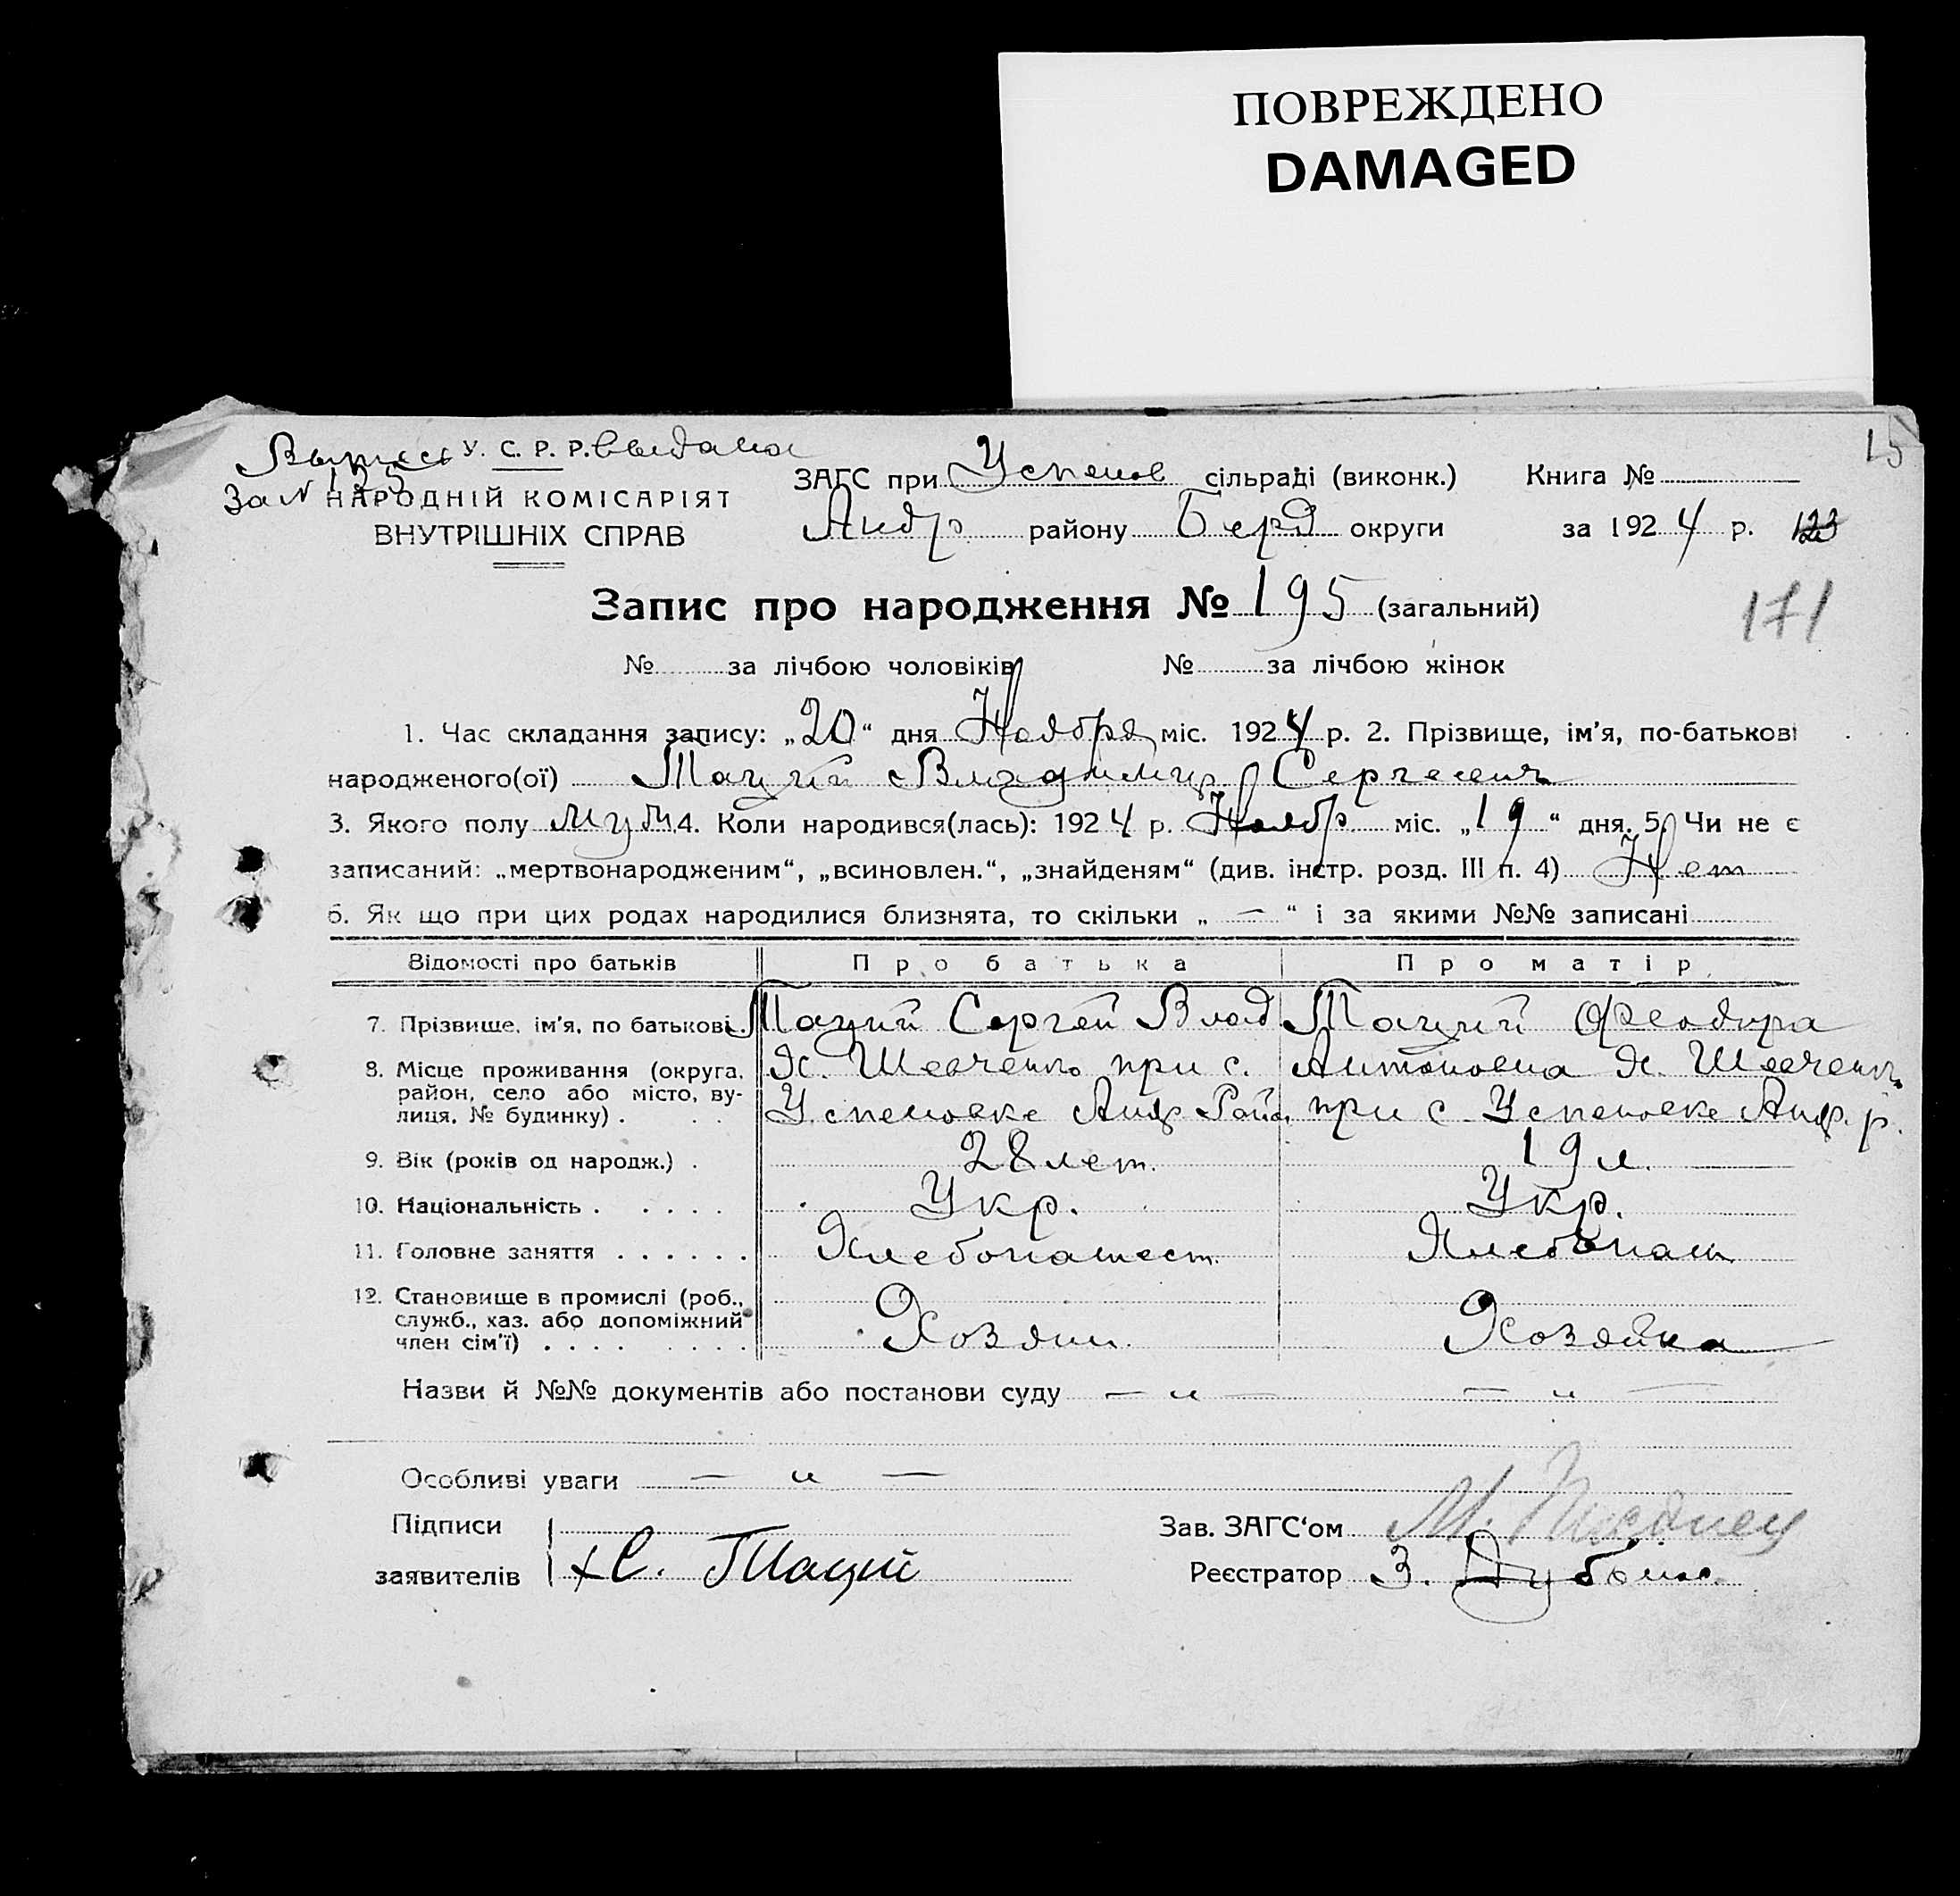 ПОВРЕЖДЕНО
DAMAGED
15
Выпись У. С. Р. Р. выдана
За N 195
НАРОДНІЙ КОМІСАРІЯТ
ВНУТРІШНІХ СПРАВ
ЗАГС при Успенов сільраді (виконк.) Книга №
Андр району Берд округи за 1924 р. 123
Запис про народження № 195 (загальний)
171
№ за лічбою чоловіків № за лічбою жінок
1. Час складання запису: „20“ дня Ноября міс. 1924 р. 2. Прізвище, ім'я, по-батькові
народженого(ої) Таций Владимир Сергеевич
3. Якого полу муж 4. Коли народився(лась): 1924 р. Ноябр міс. „19“ дня. 5. Чи не є
записаний: „мертвонародженим“, „всиновлен.“, „знайденям“ (див. інстр. розд. III п. 4) Нет
6. Як що при цих родах народилися близнята, то скільки „ — “ і за якими №№ записані
Відомості про батьків Про батька Про матір
7. Прізвище, ім'я, по батькові Таций Сергей Влад Таций Феодора
8. Місце проживання (округа, район, село або місто, вулиця, № будинку) . . . х. Шевченко при с. Антоновна х. Шевченко
Успеновке Андр Район при с Успеновке Андр. р.
9. Вік (років од народж.) . 28 лет. 19 л.
10. Національність . . . . . Укр. Укр.
11. Головне заняття . . . . . . Хлебопашест. Хлебопаш
12. Становище в промислі (роб., служб., хаз. або допоміжний член сім'ї) . . . . . . . . Хозяин. Хозяйка
Назви й №№ документів або постанови суду — „ — — „ —
Особливі уваги — „ —
Підписи Зав. ЗАГС'ом М.
заявителів х С. Тацый Реєстратор З.